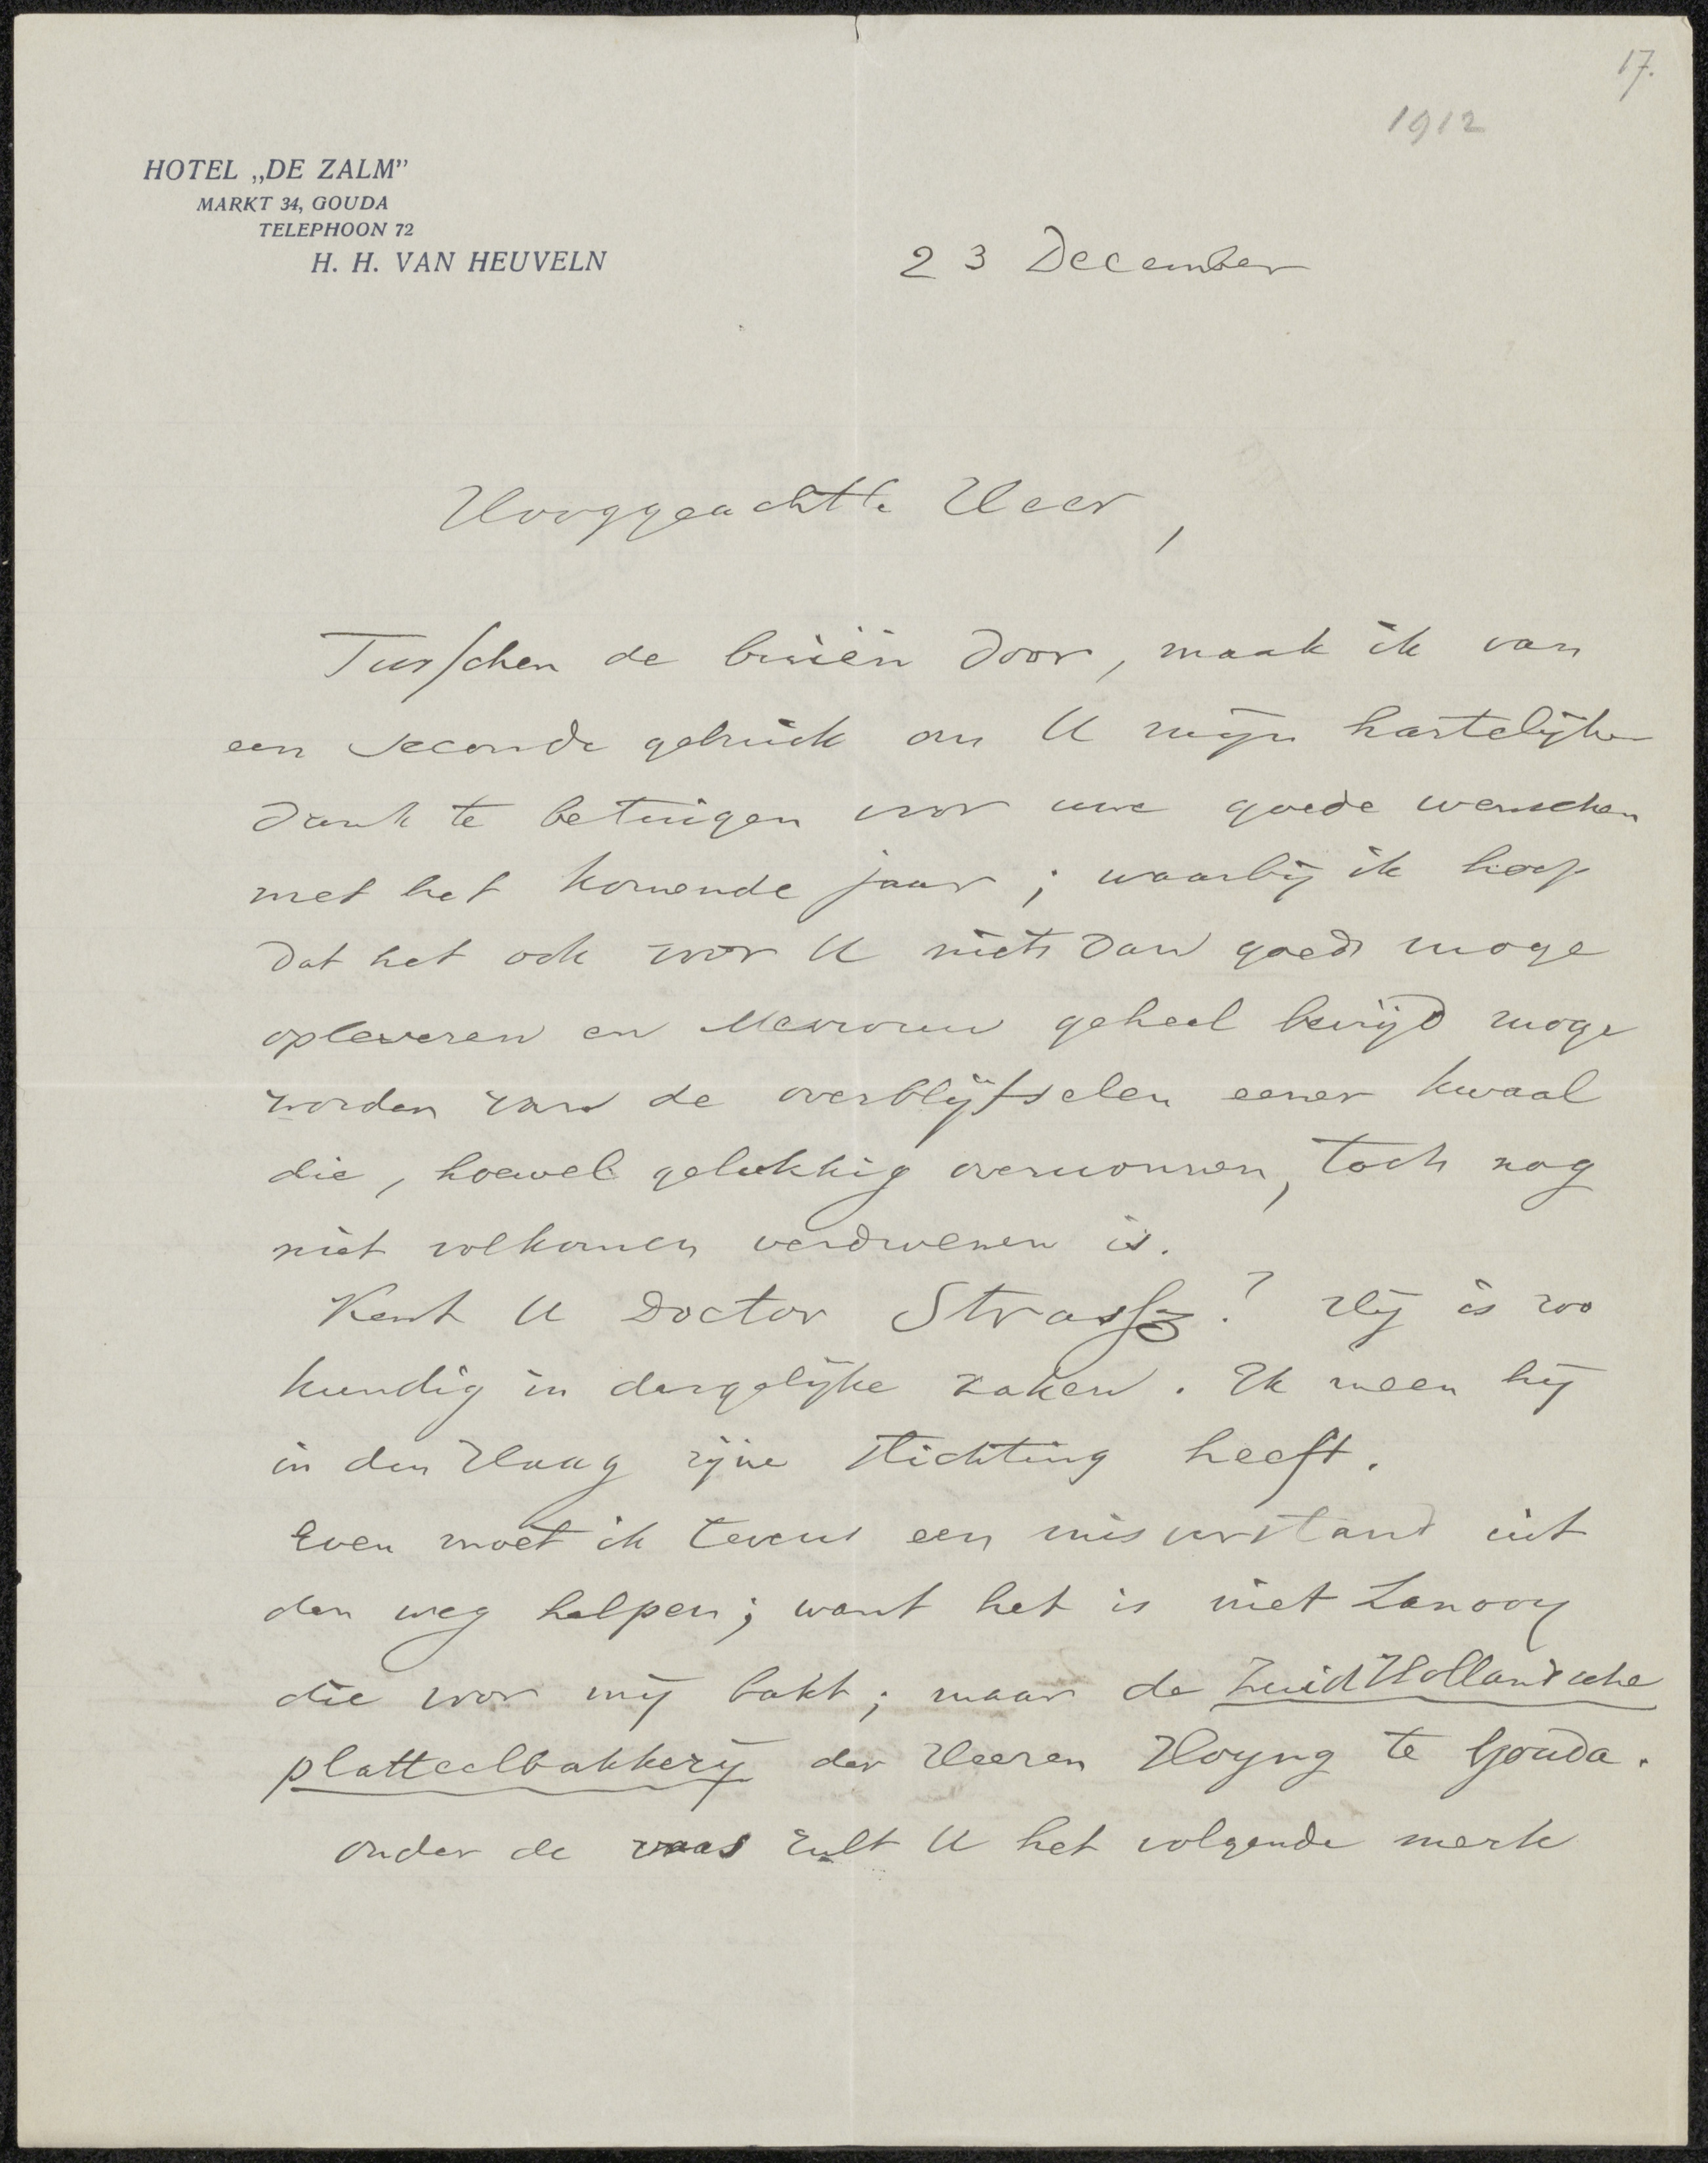 17.
1912
HOTEL „DE ZALM”
MARKT 34, GOUDA
TELEPHOON 72
H. H. VAN HEUVELN
23 December
Hooggeachtte Heer,
Tusschen de buiën door, maak ik van
een seconde gebruik om U mijn hartelijken
dank te betuigen voor uwe goede wenschen
met het komende jaar; waarbij ik hoop
dat het ook voor U niets dan goeds moge
opleveren en Mevrouw geheel bevrijd moge
worden van de overblijfselen eener kwaal
die, hoewel gelukkig overwonnen, toch nog
niet volkomen verdwenen is.
Kent U Doctor ? Hij is zoo
kundig in dergelijke zaken. Ik meen hij
in den Haag zijne stichting heeft.
Even moet ik tevens een misverstand uit
den weg helpen; want het is niet Lanooy
die voor mij bakt; maar de Zuid Hollandsche
platteelbakkerij der Heeren Hoyng te Gouda.
onder de vaas zult U het volgende merk